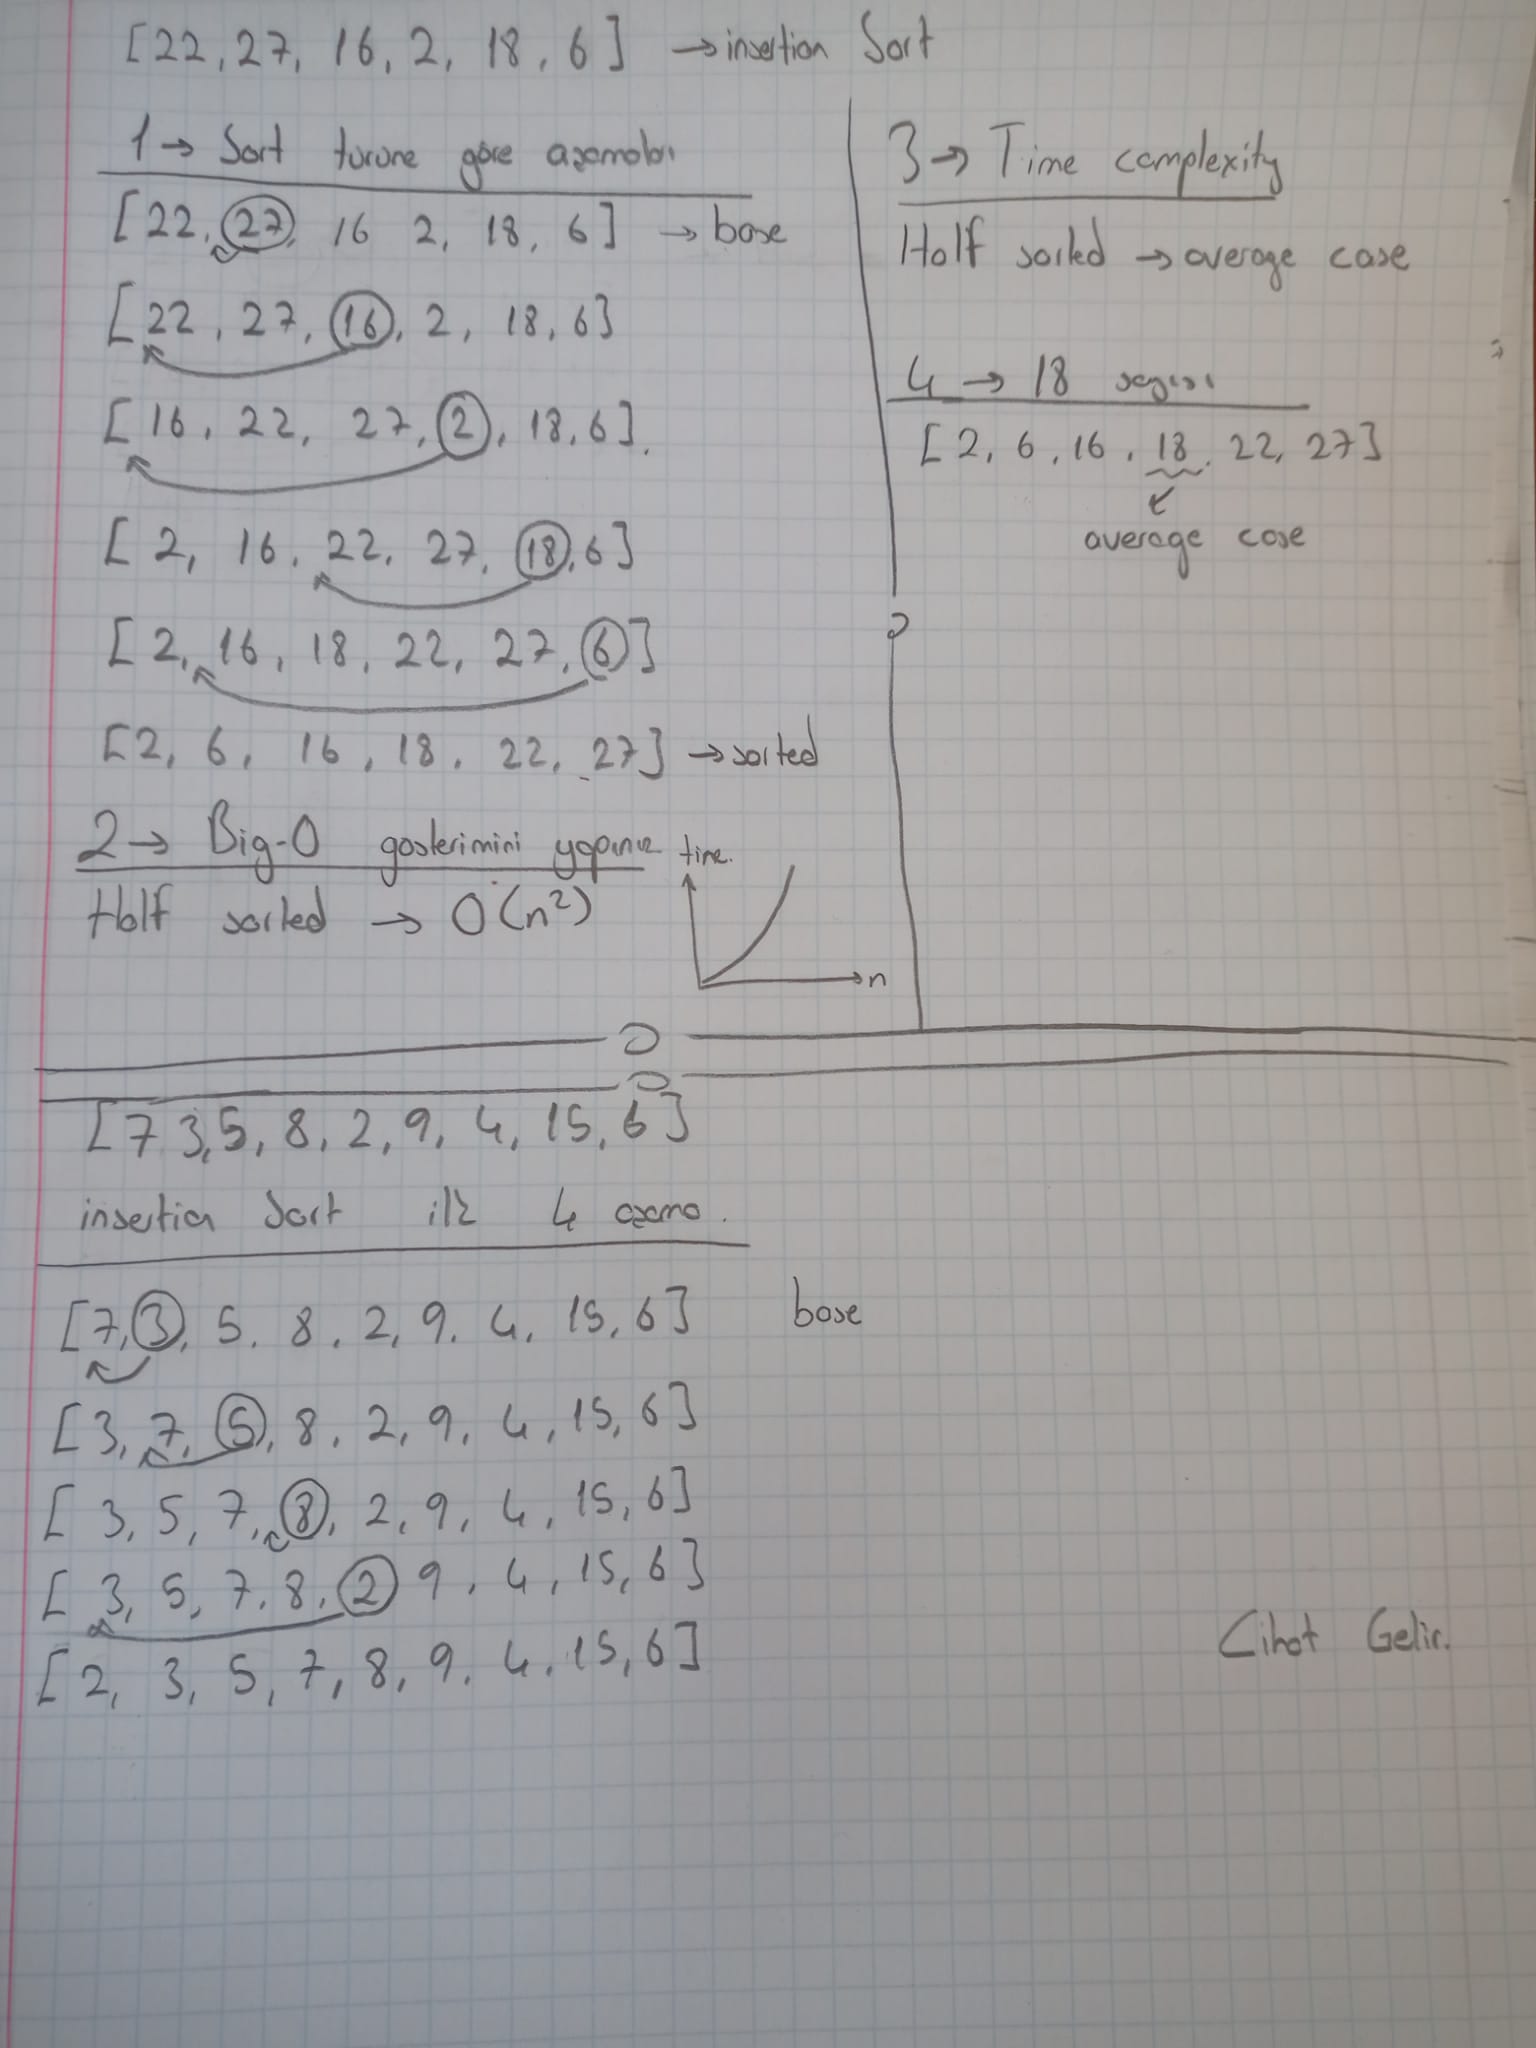 [22, 27, 16, 2, 18, 6] → insertion Sort
1 → Sort türüne göre aşamaları
[22, 27, 16 2, 18, 6] → base
[22, 27, 16, 2, 18, 6]
[16, 22, 27, 2, 18, 6].
[2, 16, 22, 27, 18, 6]
[2, 16, 18, 22, 27, 6]
[2, 6, 16, 18, 22, 27] → sorted
2 → Big-O gösterimini yapınız
Half sorted → O(n²)
time.
n
3 → Time complexity
Half sorted → average case
4 → 18 sayısı
[2, 6, 16, 18, 22, 27]
average case
[7 3, 5, 8, 2, 9, 4, 15, 6]
insertion Sort ilk 4 aşama.
[7, 3, 5, 8, 2, 9, 4, 15, 6] base
[3, 7, 5, 8, 2, 9, 4, 15, 6]
[3, 5, 7, 8, 2, 9, 4, 15, 6]
[3, 5, 7, 8, 2 9, 4, 15, 6]
[2, 3, 5, 7, 8, 9, 4, 15, 6]
Cihat Gelir.